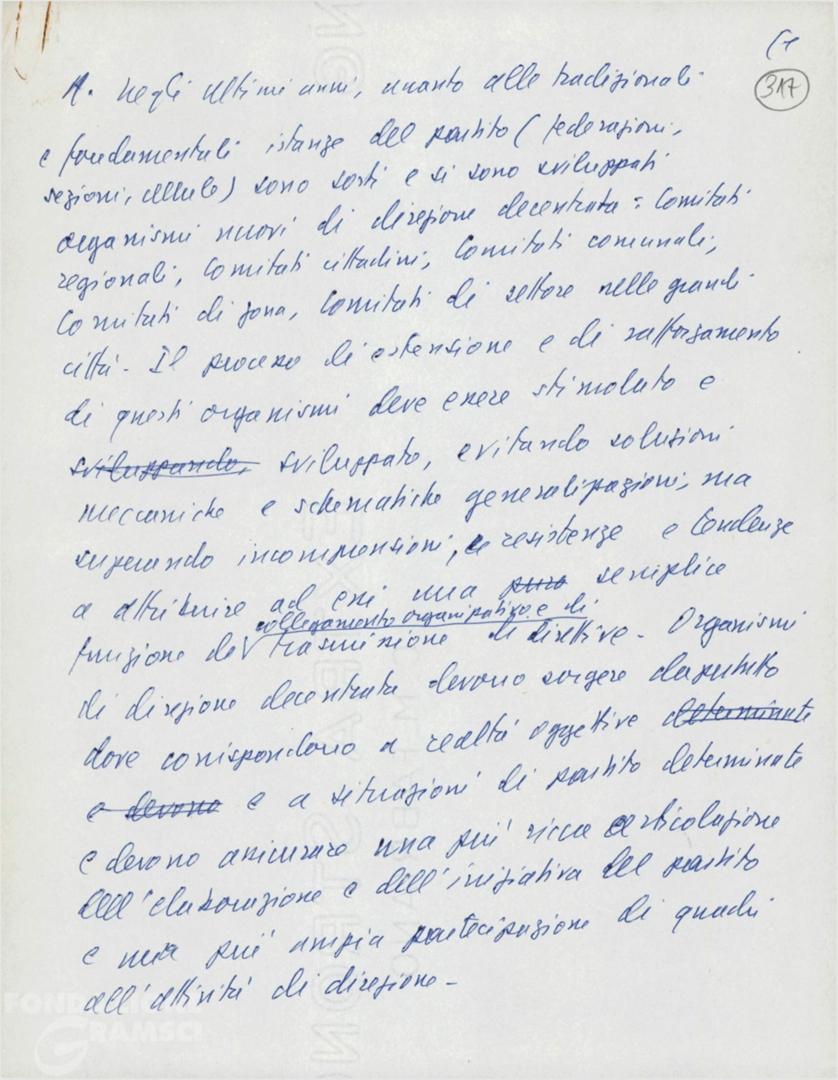 317
1. Negli ultimi anni, accanto alle tradizionali
e fondamentali istanze del partito (federazioni,
sezioni, cellule) sono sorti e si sono sviluppati
organismi nuovi di direzione decentrata: Comitati
regionali, Comitati cittadini, Comitati comunali,
Comitati di zona, Comitati di settore nelle grandi
città. Il processo di estensione e di rafforzamento
di questi organismi deve essere stimolato e
sviluppando, sviluppato, evitando soluzioni
meccaniche e schematiche generalizzazioni, ma
superando incomprensioni, resistenze e tendenze
a attribuire ad essi una pura semplice
collegamento organizzativo e di
funzione di trasmissione di direttive. Organismi
di direzione decentrata devono sorgere dappertutto
dove corrispondono a realtà oggettive determinate
e devono e a situazioni di partito determinate
e devono assicurare una più ricca articolazione
dell'elaborazione e dell'iniziativa del partito
e una più ampia partecipazione di quadri
all'attività di direzione.
FONDAZIONE
GRAMSCI